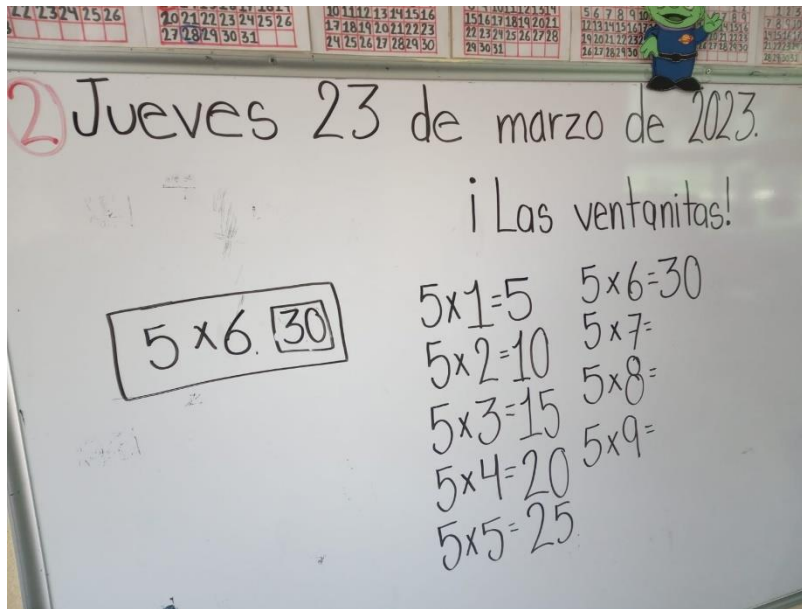 22 23 24 25 26
20 21 22 23 24 25 26
27 28 29 30 31
10 11 12 13 14 15 16
17 18 19 20 21 22 23
24 25 26 27 28 29 30
15 16 17 18 19 20 21
22 23 24 25 26 27 28
29 30 31
5 6 7 8 9 10
2 Jueves 23 de marzo de 2023.
¡Las ventanitas!
5 x 6. 30
5x1=5
5x2=10
5x3=15
5x4=20
5x5=25
5x6=30
5x7=
5x8=
5x9=